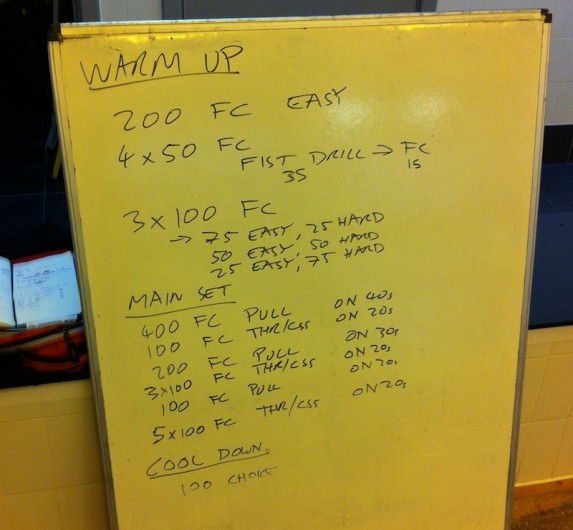 WARM UP
200 FC EASY
4x50 FC
FIST DRILL → FC
35 15
3x100 FC
→ 75 EASY, 25 HARD
50 EASY, 50 HARD
25 EASY, 75 HARD
MAIN SET
400 FC PULL ON 40s
100 FC THR/CSS ON 20s
200 FC PULL ON 30s
3x100 FC THR/CSS ON 20s
100 FC PULL ON 20s
5x100 FC THR/CSS ON 20s
COOL DOWN
100 CHOICE